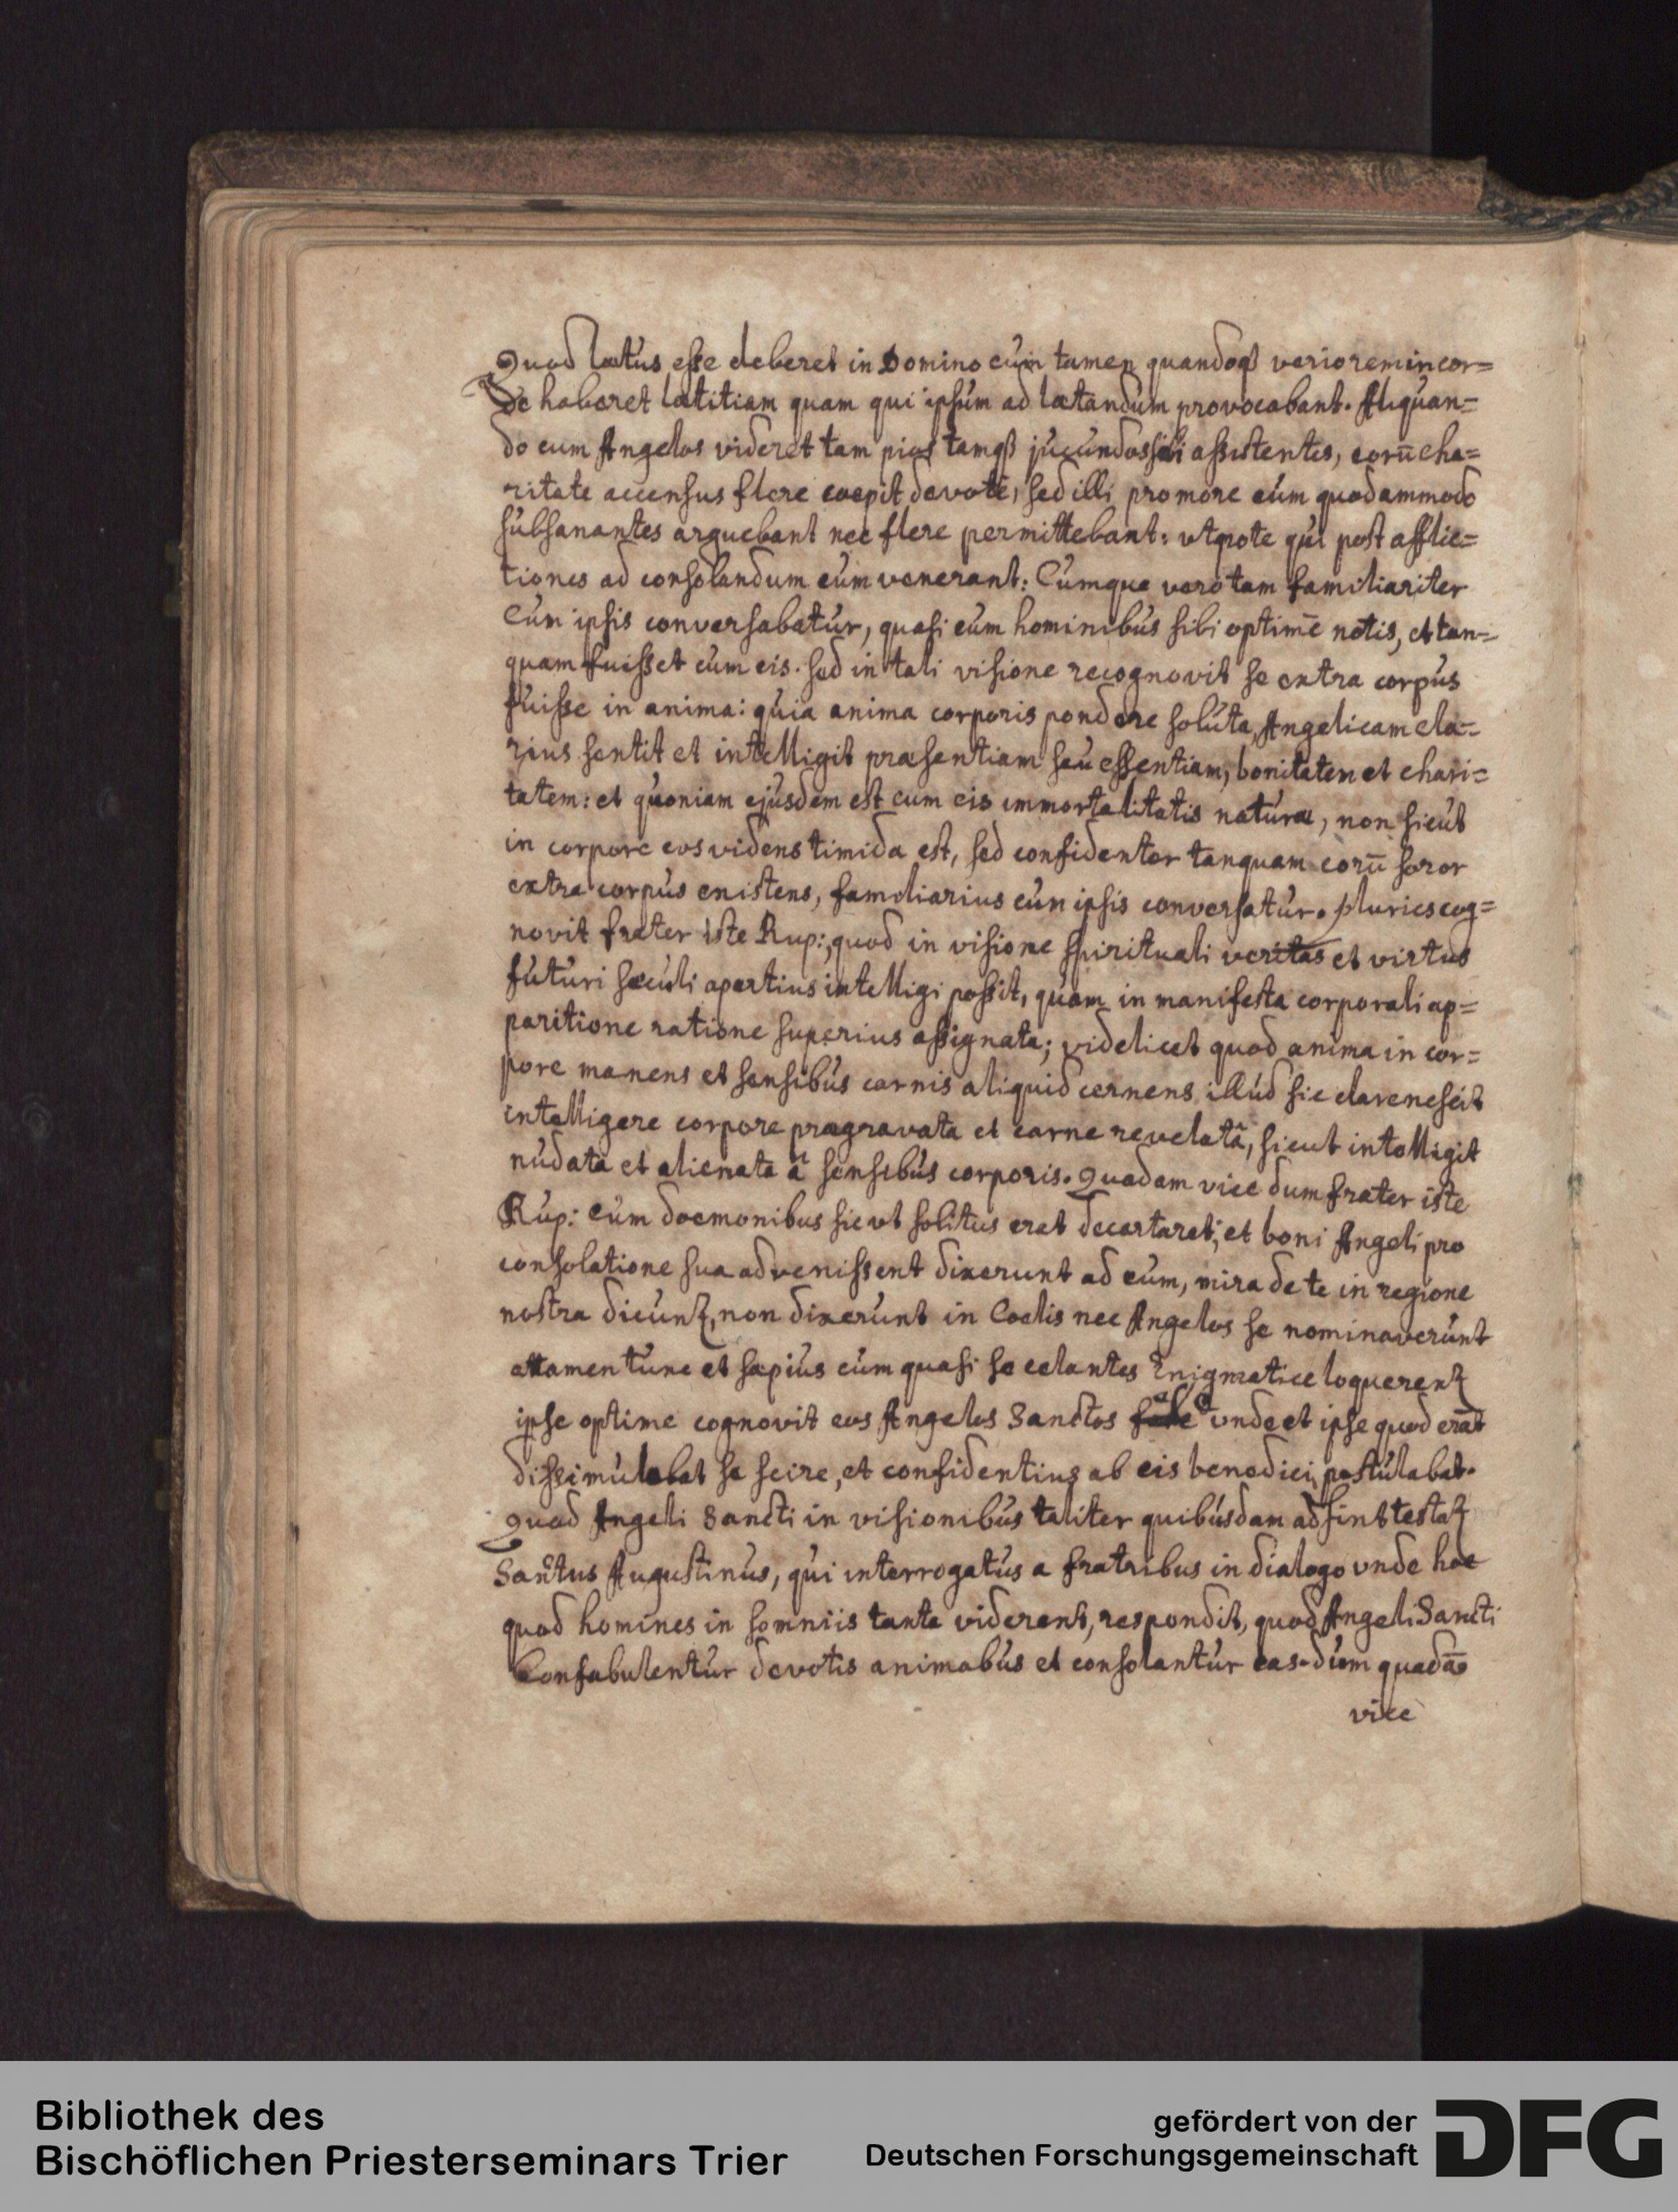 Quod lætus esse deberet in Domino cùm tamen quandoq verioremincor=
de haberet lætitiam quam qui ipsùm ad lætandùm provocabant. Aliquan=
do cum Angelos videret tam pios tamq jucùndos sibi assistentes, corū cha=
ritate accensus flere coepit devote, sed illi pro more eùm quodammodo
sùbsanantes arguebant nec flere permittebant: vtpote qùi post afflic=
tiones ad consolandum eùm venerant: Cùmque vero tam familiariter
Cùm ipsis conversabatùr, quasi cùm hominibùs sibi optimè notis, et tan=
quam fuisset cùm eis. sed in tali visione recognovit se extra corpùs
fùisse in anima: qùia anima corporis pondere solùta, Angelicam cla=
rius sentit et intelligit præsentiam seu essentiam, bonitatem et chari=
tatem: et quoniam ejùsdem est cum eis immortalitatis natùræ, non sicùt
in corpore eos videns timida est, sed confidenter tanquam corū soror
extra corpùs existens, familiarius cùm ipsis conversatùr. pluries cog=
novit frater iste Rup:, quod in visione spirituali veritas et virtus
fùtùri sæcùli apertius intelligi possit, quam in manifesta corporali ap=
paritione ratione superius assignata; videlicet quod anima in cor=
pore manens et sensibùs carnis aliquid cernens illùd sic clare nescit
intelligere corpore prægravata et carne revelatâ, sicut intelligit
nùdata et alienata â sensibùs corporis. Quadam vice dum frater iste
Rùp: cùm doemonibus sicvt solitus erat decertaret; et boni Angeli pro
consolatione sua advenissent dixerunt ad eùm, mira de te in regione
nostra dicunt, non dixerùnt in Coelis nec Angelos se nominaverùnt
attamen tùnc et sæpius cùm quasi se celantes Enigmatice loquerent
ipse optime cognovit eos Angelos Sanctos vnde et ipse quod erat
dissimùlabat se scire, et confidentius ab eis benedici postùlabat.
Quod Angeli Sancti in visionibùs taliter quibùsdam adsint testat
Sanctus Augustinùs, qùi interrogatùs a fratribus in dialogo vnde hoc
quod homines in somniis tanta viderent, respondit, quod Angeli Sancti
Confabulentùr devotis animabùs et consolantùr eas. dùm quadā
vice
Bibliothek des
Bischöflichen Priesterseminars Trier
gefördert von der
Deutschen Forschungsgemeinschaft
DFG